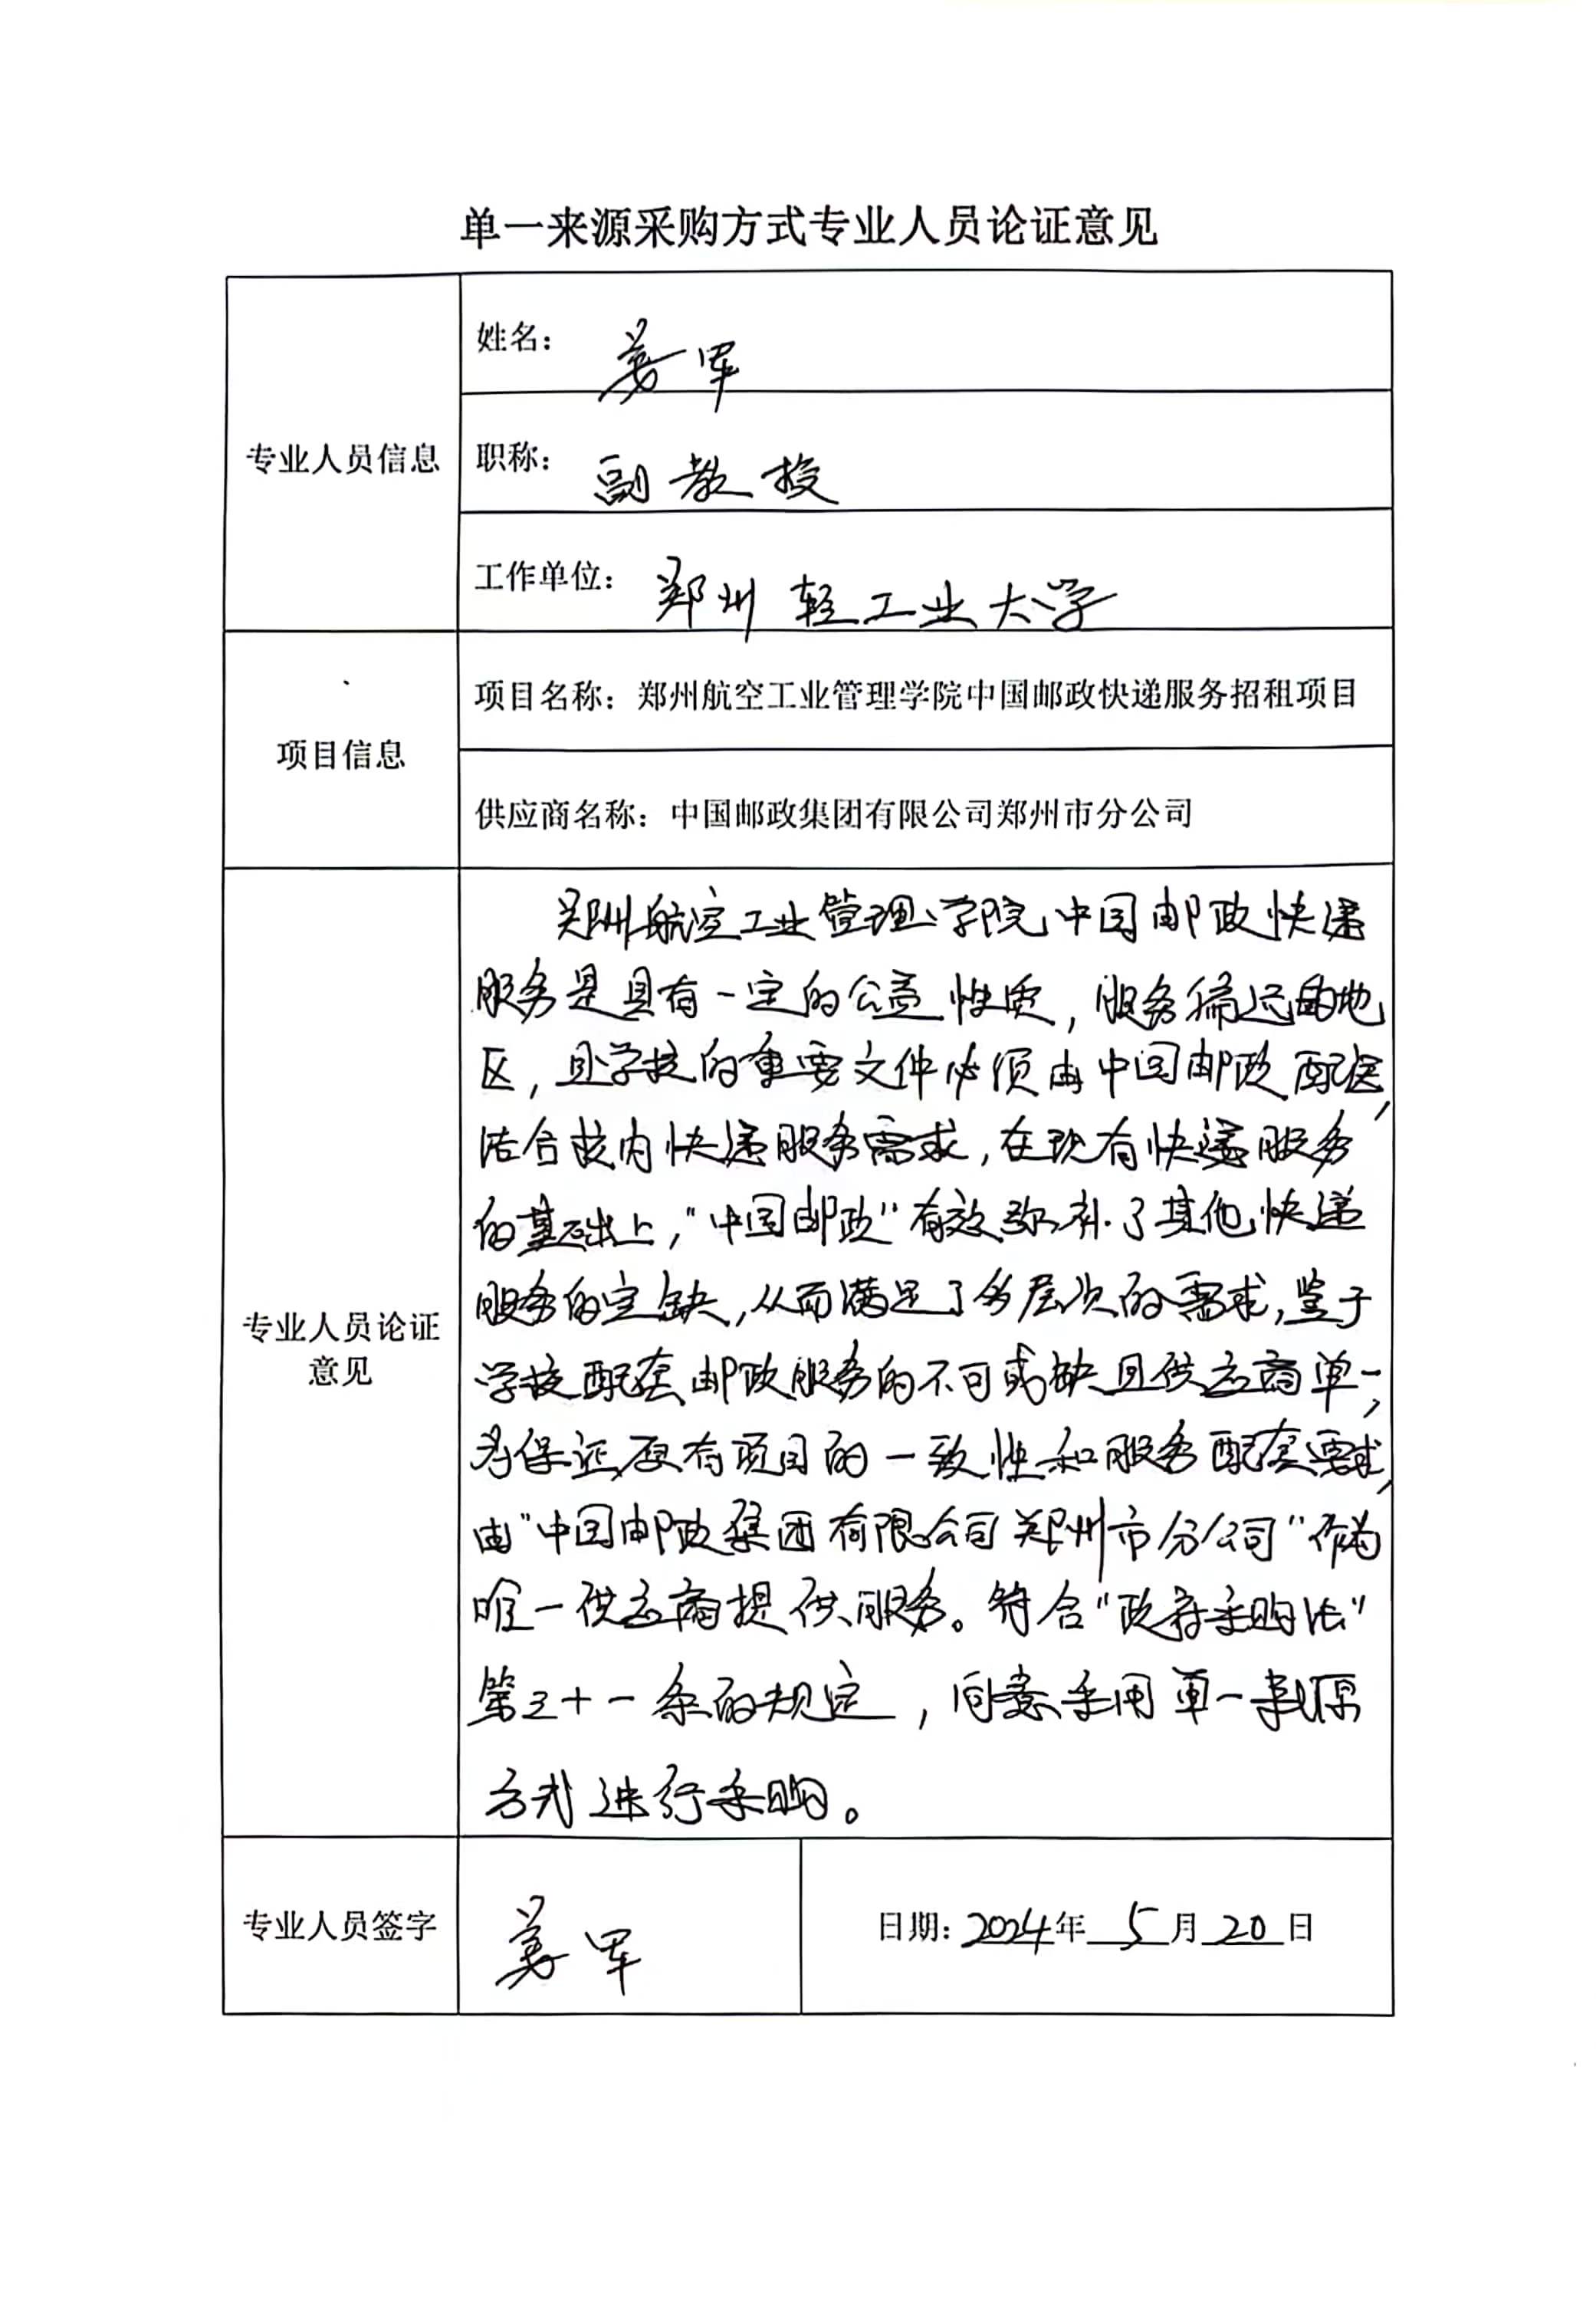 单一来源采购方式专业人员论证意见
专业人员信息
姓名：姜军
职称：副教授
工作单位：郑州轻工业大学
项目信息
项目名称：郑州航空工业管理学院中国邮政快递服务招租项目
供应商名称：中国邮政集团有限公司郑州市分公司
专业人员论证
意见
郑州航空工业管理学院中国邮政快递
服务是具有一定的公益性质，服务偏远的地
区，且学校的重要文件必须由中国邮政配送，
结合校内快递服务需求，在现有快递服务
的基础上，“中国邮政”有效弥补了其他快递
服务的空缺，从而满足了多层次的需求，鉴于
学校配套邮政服务的不可或缺且供应商单一，
为保证原有项目的一致性和服务配套需求，
由“中国邮政集团有限公司郑州市分公司”作为
唯一供应商提供服务。符合“政府采购法”
第三十一条的规定，同意采用单一来源
方式进行采购。
专业人员签字
姜军
日期：2024年5月20日